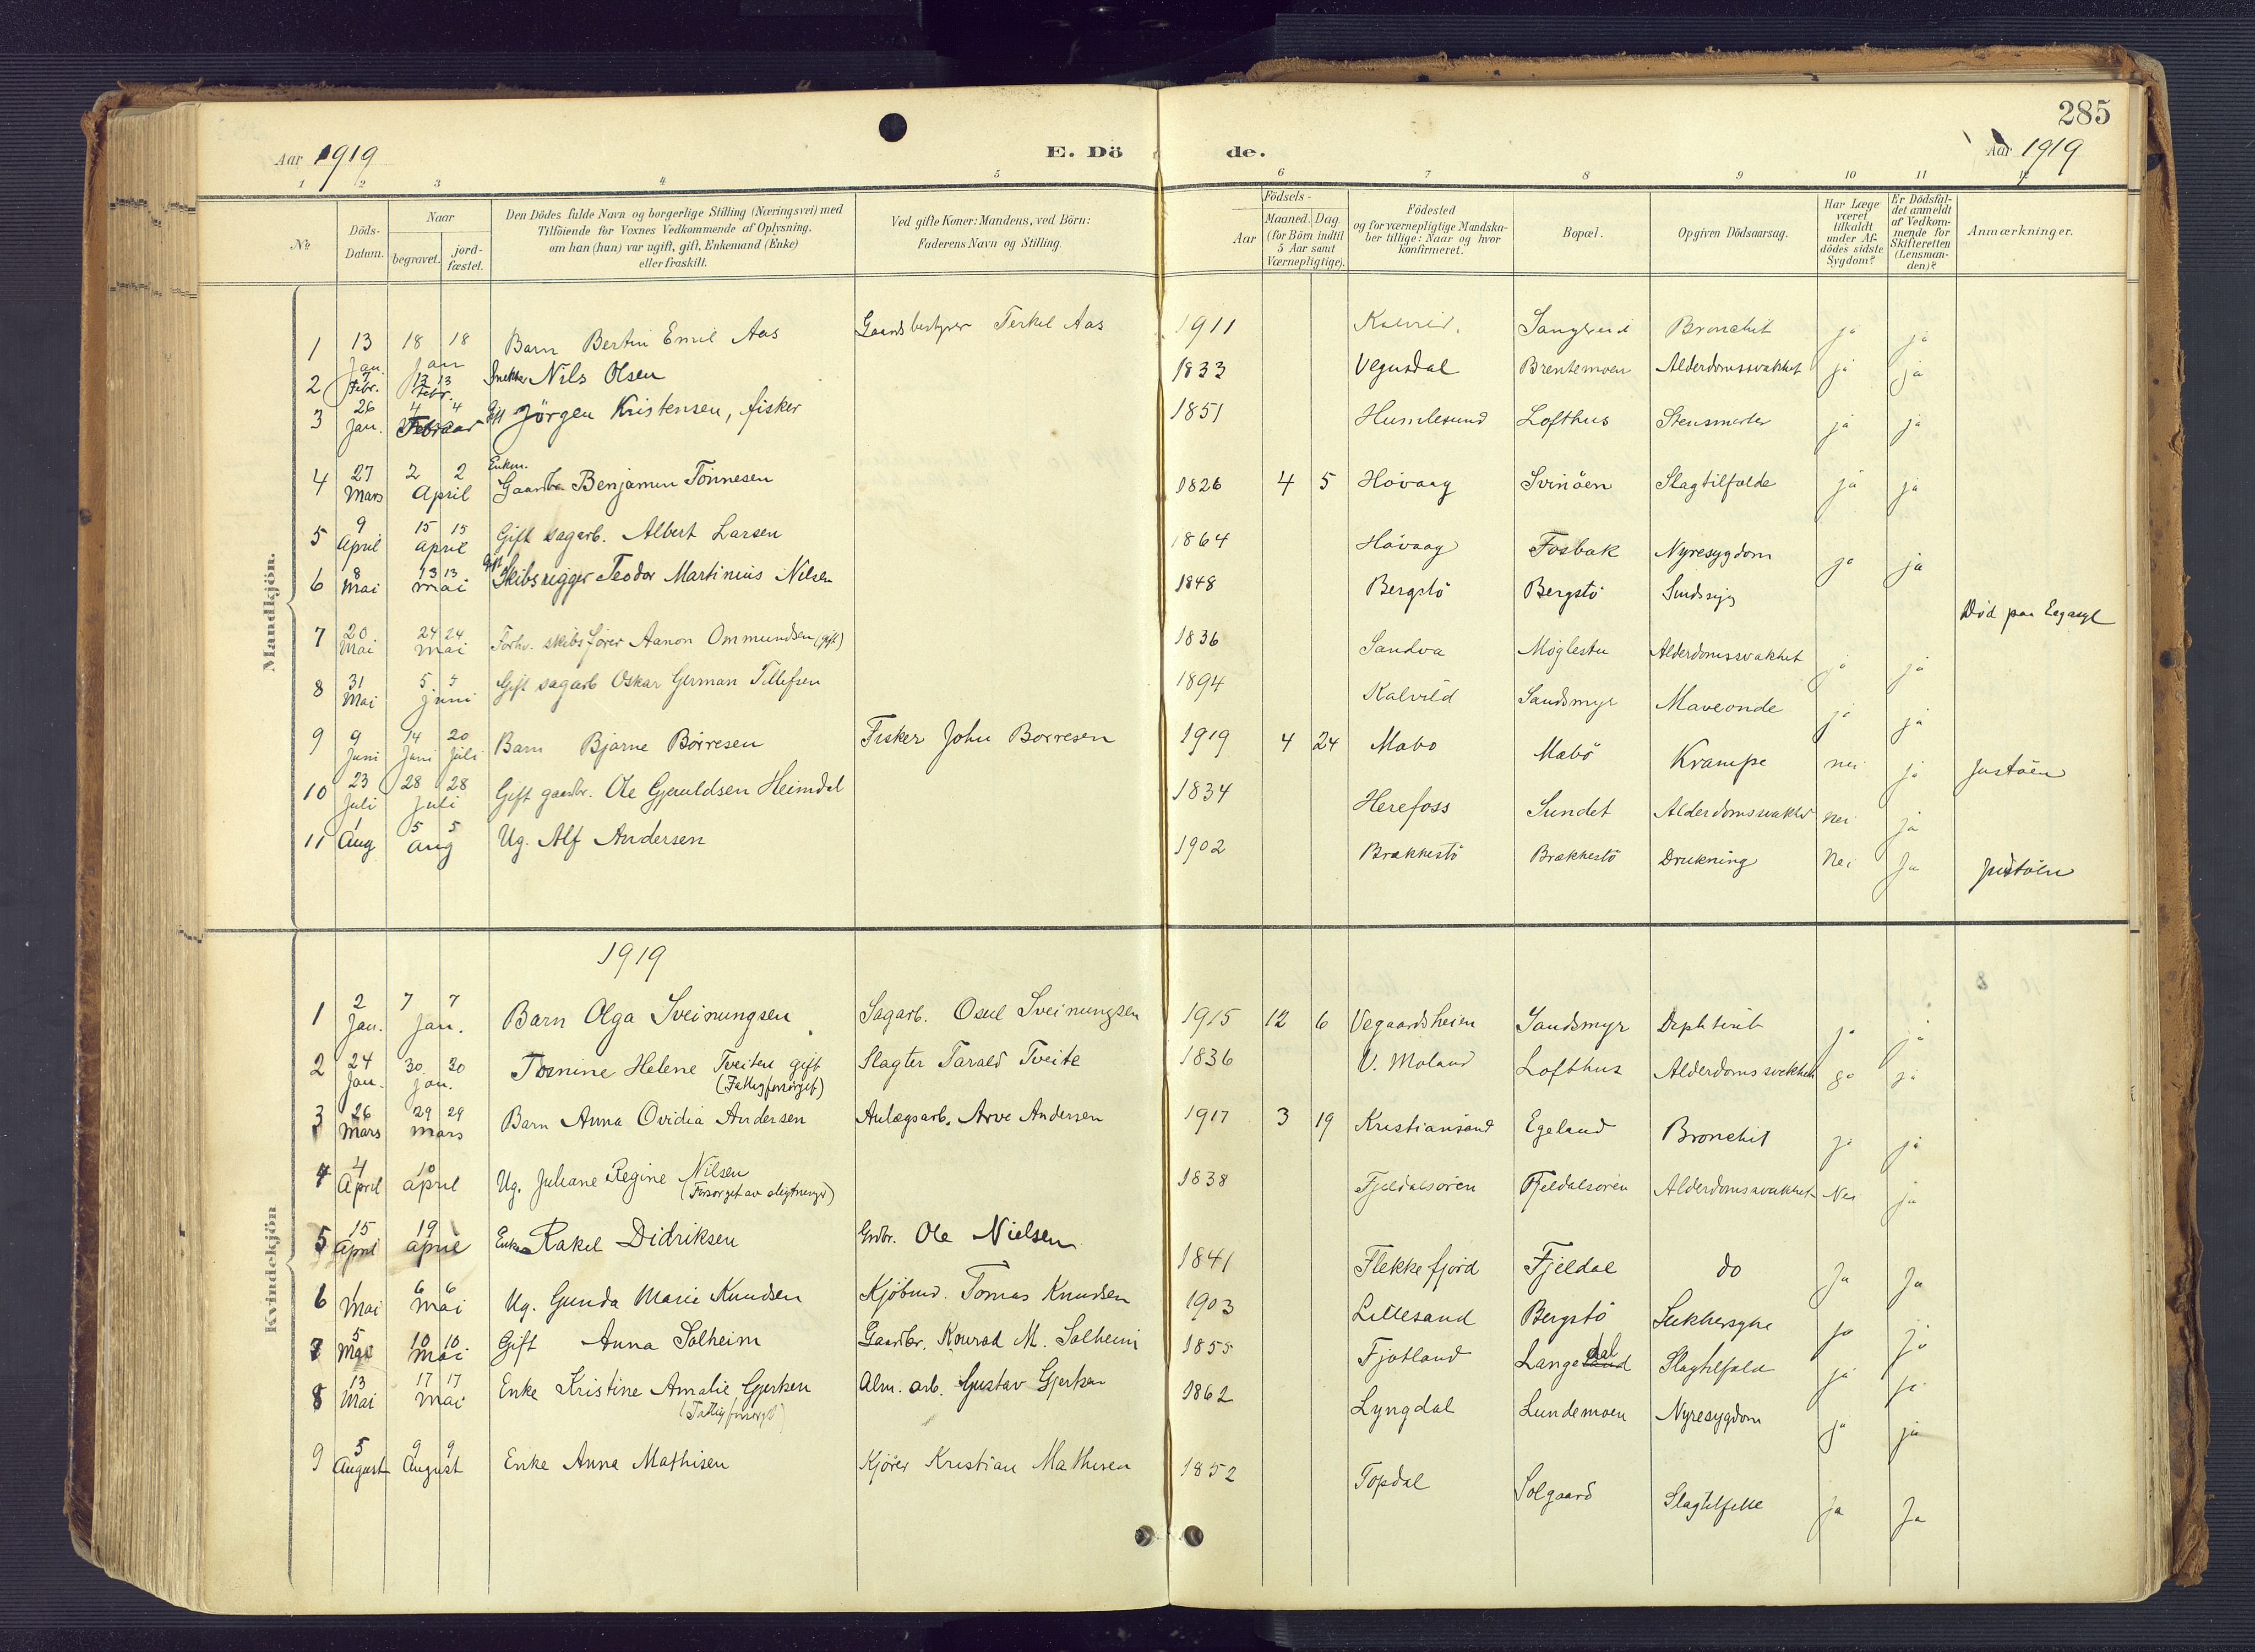 285
Aar 1919
E. Döde.
Aar 1919
1 2 3 4 5 6 7 8 9 10 11 12
No
Döds-Datum.
Naar
begravet.
jord-fæstet.
Den Dödes fulde Navn og borgerlige Stilling (Næringsvei) med
Tilföiende for Voxnes Vedkommende af Oplysning,
om han (hun) var ugift, gift, Enkemand (Enke)
eller fraskilt.
Ved gifte Koner: Mandens, ved Börn:
Faderens Navn og Stilling.
Födsels-
Aar
Maaned. Dag.
(for Börn indtil
5 Aar samt
Værnepligtige).
Födested
og for værnepligtige Mandska-
ber tillige: Naar og hvor
konfirmeret.
Bopæl.
Opgiven Dödsaarsag.
Har Læge
været
tilkaldt
under Af-
dödes sidste
Sygdom?
Er Dödsfal-
det anmeldt
af Vedkom-
mende for
Skifteretten
(Lensman-
den)?
Anmærkninger.
Mandkjön.
1 13 Jan. 18 18 Jan Barn Bertin Emil Aas Gaardsbestyrer Terkel Aas 1911 Kalvild. Bronchit ja ja
2 Febr. 13 13 Febr. Snekker Nils Olsen 1833 Vegusdal Brentemoen Alderdomssvakhet ja ja
3 26 Jan. 4 4 Februar Gift Jörgen Kristensen, fisker 1851 Humlesund Lofthus Stensmerter ja ja
4 27 Mars 2 2 April Enkem. Gaardbr. Benjamin Tönnesen 1826 4 5 Hövaag Svinöen Slagtilfælde ja ja
5 9 April 15 15 April Gift sagarb. Albert Larsen 1864 Hövaag Fosbæk Nyresygdom ja ja
6 8 Mai 13 13 Mai Gift Skibsrigger Teodor Martinius Nilsen 1848 Bergstö Bergstö Sindssyg Död paa Eg asyl
7 20 Mai 24 24 Mai Forhv. skibsförer Aanon Ommundsen (gift) 1836 Sandva Möglestu Alderdomssvakhet ja ja
8 31 Mai 5 5 Juni Gift sagarb Oskar German Tellefsen 1894 Kalvild Sandsmyr Maveonde ja ja
9 9 Juni 14 Juni 20 Juli Barn Bjarne Börresen Fisker John Börresen 1919 4 24 Mabö Mabö Krampe nei ja Justöen
10 23 Juli 28 28 Juli Gift gaardbr. Ole Gjeruldsen Heimdal 1834 Herefoss Sundet Alderdomssvakhet nei ja
11 1 Aug 5 5 Aug Ug. Alf Andersen 1902 Brækkestö Brækkestö Drukning Nei Ja Justöen
Kvindekjön
1919
1 2 Jan. 7 7 Jan. Barn Olga Sveinungsen Sagarb. Osul Sveinungsen 1915 12 6 Vegaardsheien Sandsmyr Diphterit ja ja
2 24 Jan. 30 30 Jan. Tomine Helene Tveiten gift Slagter Tarald Tveite 1836 V. Moland Lofthus Alderdomssvakhet ja ja
(Fattigforsörget)
3 26 Mars 29 29 Mars Barn Anna Ovidia Andersen Anlægsarb. Arve Andersen 1917 3 19 Kristiansand Egeland Bronchit ja ja
4 4 April 10 April Ug. Juliane Regine Nilsen 1838 Fjeldalsören Fjeldalsören Alderdomssvakhet Nei ja
(Forsörget av slegtninger)
5 15 April 19 April Enke Rakel Didriksen Grdbr. Ole Nielsen 1841 Flekkefjord Fjeldal do Ja Ja
6 1 Mai 6 6 Mai Ug. Gunda Marie Knudsen Kjöbmd. Tomas Knudsen 1903 Lillesand Bergstö Sukkersyke ja ja
7 5 Mai 10 10 Mai Gift Anna Solheim Gaardbr. Konrad M. Solheim 1855 Fjotland Langedal Slagtilfæld ja ja
8 13 Mai 17 17 Mai Enke Kristine Amalie Gjertsen Alm. arb. Gustav Gjertsen 1862 Lyngdal Lundemoen Nyresygdom ja ja
(Fattigforsörget)
9 5 August 9 9 August Enke Anna Mathisen Kjörer Kristian Mathisen 1852 Topdal Solgaard Slagtilfelle Ja Ja